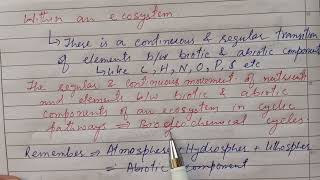 Within an ecosystem
↳ There is a continuous & regular transition
of elements b/w biotic & abiotic component
↳ like C, H, N, O, P, S etc
The regular & continuous movement of nutrients
and elements b/w biotic & abiotic
components of an ecosystem in cyclic
pathways ⇒ Biogeochemical cycles
Remember ⇒ Atmosphere + Hydrosphere + Lithosphere
⇒ Abiotic component